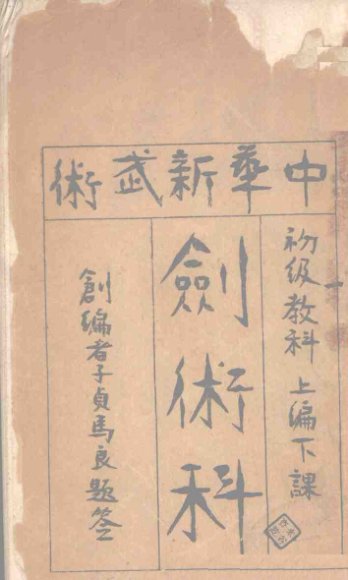 中華新武術
初級教科 上編下課
劍術科
創編者子貞馬良題签